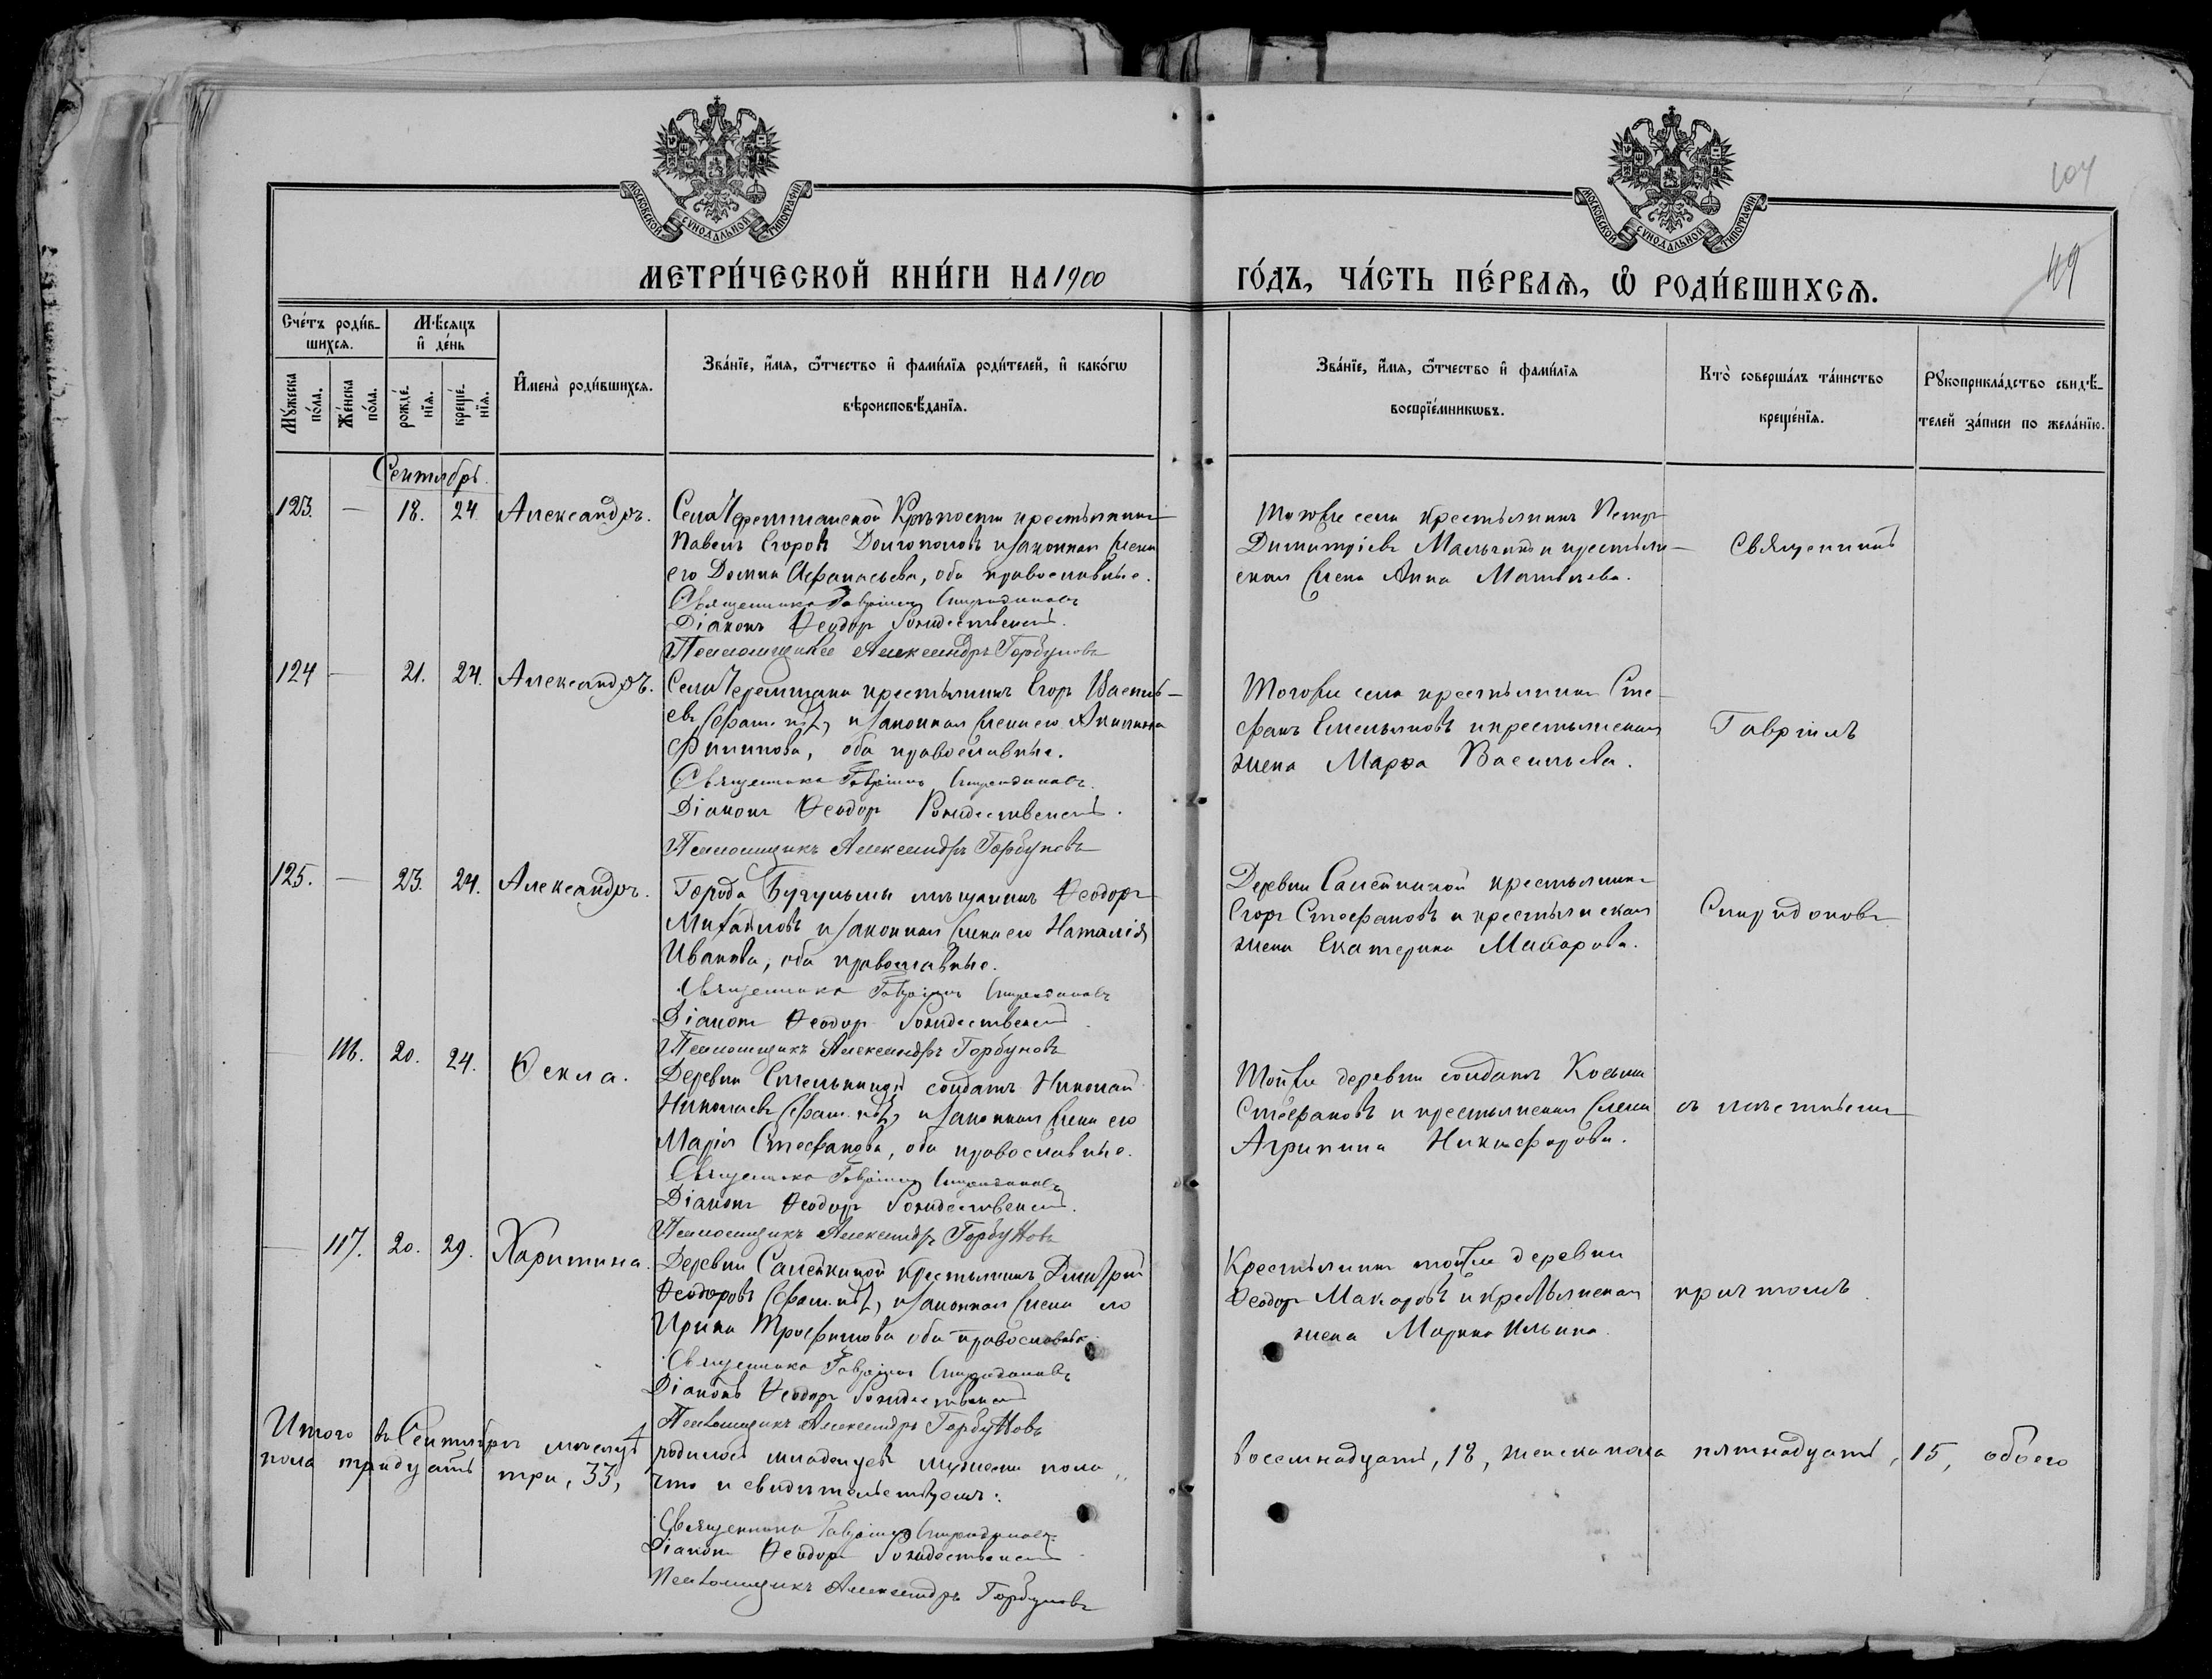 104
49
МОСКОВСКОЙ СУНОДАЛЬНОЙ ТИПОГРАФІИ
МОСКОВСКОЙ СУНОДАЛЬНОЙ ТИПОГРАФІИ
МЕТРИ́ЧЕСКОЙ КНИ́ГИ НА 1900
ГО́ДЪ, ЧА́СТЬ ПЕ́РВАѦ, Ѽ РОДИ́ВШИХСѦ.
Сче́тъ роди́в-
шихсѧ.
Мѣ́сѧцъ
и҆ де́нь
Мꙋ́жеска
по́ла.
Же́нска
по́ла.
рожде́-
нїѧ.
креще́-
нїѧ.
И҆мена̀ роди́вшихсѧ.
Зва́нїе, и҆́мѧ, ѻ҆́тчество и҆ фами́лїѧ роди́телей, и҆ како́гѡ
вѣроисповѣ́данїѧ.
Зва́нїе, и҆́мѧ, ѻ҆́тчество и҆ фами́лїѧ
воспрїе́мникѡвъ.
Кто̀ соверша́лъ та́инство
креще́нїѧ.
Рꙋкоприкла́дство свидѣ́-
телей за́писи по жела́нїю.
Сентябрь.
123. — 18. 24. Александръ.
Села Черемшанской Крѣпости крестьянинъ
Павелъ Егоровъ Долгополовъ и законная жена
его Домна Афанасьева, оба православные.
Священникъ Гавріилъ Спиридоновъ
Діаконъ Ѳеодоръ Рождественскій.
Псаломщикъ Александръ Горбуновъ
Тогоже села крестьянинъ Петръ
Димитріевъ и крестьян-
ская жена Анна Матвѣева.
Священникъ
124 — 21. 24. Александръ.
Села Черемшана крестьянинъ Егоръ Василь-
евъ (фам. нѣтъ) и законная жена его Акилина
Филипова, оба православные.
Священникъ Гавріилъ Спиридоновъ.
Діаконъ Ѳеодоръ Рождественскій.
Псаломщикъ Александръ Горбуновъ
Тогоже села крестьянинъ Сте-
фанъ Емельяновъ и крестьянская
жена Марѳа Васильева.
Гавріилъ
125. — 23. 24. Александръ.
Города Бугульмы мѣщанинъ Ѳеодоръ
Михайловъ и законная жена его Наталія
Иванова, оба православные.
Священникъ Гавріилъ Спиридоновъ
Діаконъ Ѳеодоръ Рождественскій.
Псаломщикъ Александръ Горбуновъ
Деревни крестьянинъ
Егоръ Стефановъ и крестьянская
жена Екатерина Макарова.
Спиридоновъ
— 116. 20. 24. Ѳекла.
Деревни солдатъ Николай
Николаевъ (фам. нѣтъ) и законная жена его
Марія Стефанова, оба православные.
Священникъ Гавріилъ Спиридоновъ
Діаконъ Ѳеодоръ Рождественскій.
Псаломщикъ Александръ Горбуновъ
Тойже деревни солдатъ Косьма
Стефановъ и крестьянская жена
Агрипина Никифорова.
съ мѣстнымъ
— 117. 20. 29. Харитина.
Деревни крестьянинъ Дмитрій
Ѳеодоровъ (фам. нѣтъ) и законная жена его
Ирина Трофимова оба православн.
Священникъ Гавріилъ Спиридоновъ
Діаконъ Ѳеодоръ Рождественскій
Псаломщикъ Александръ Горбуновъ
Крестьянинъ тойже деревни
Ѳеодоръ Макаровъ и крестьянская
жена Марина Ильина.
причтомъ.
Итого въ Сентябрѣ мѣсяцѣ родилось младенцевъ мужеска пола восемнадцать, 18, женска пола пятнадцать, 15, обоего
пола тридцать три, 33, что и свидѣтельствуемъ:
Священникъ Гавріилъ Спиридоновъ.
Діаконъ Ѳеодоръ Рождественскій
Псаломщикъ Александръ Горбуновъ